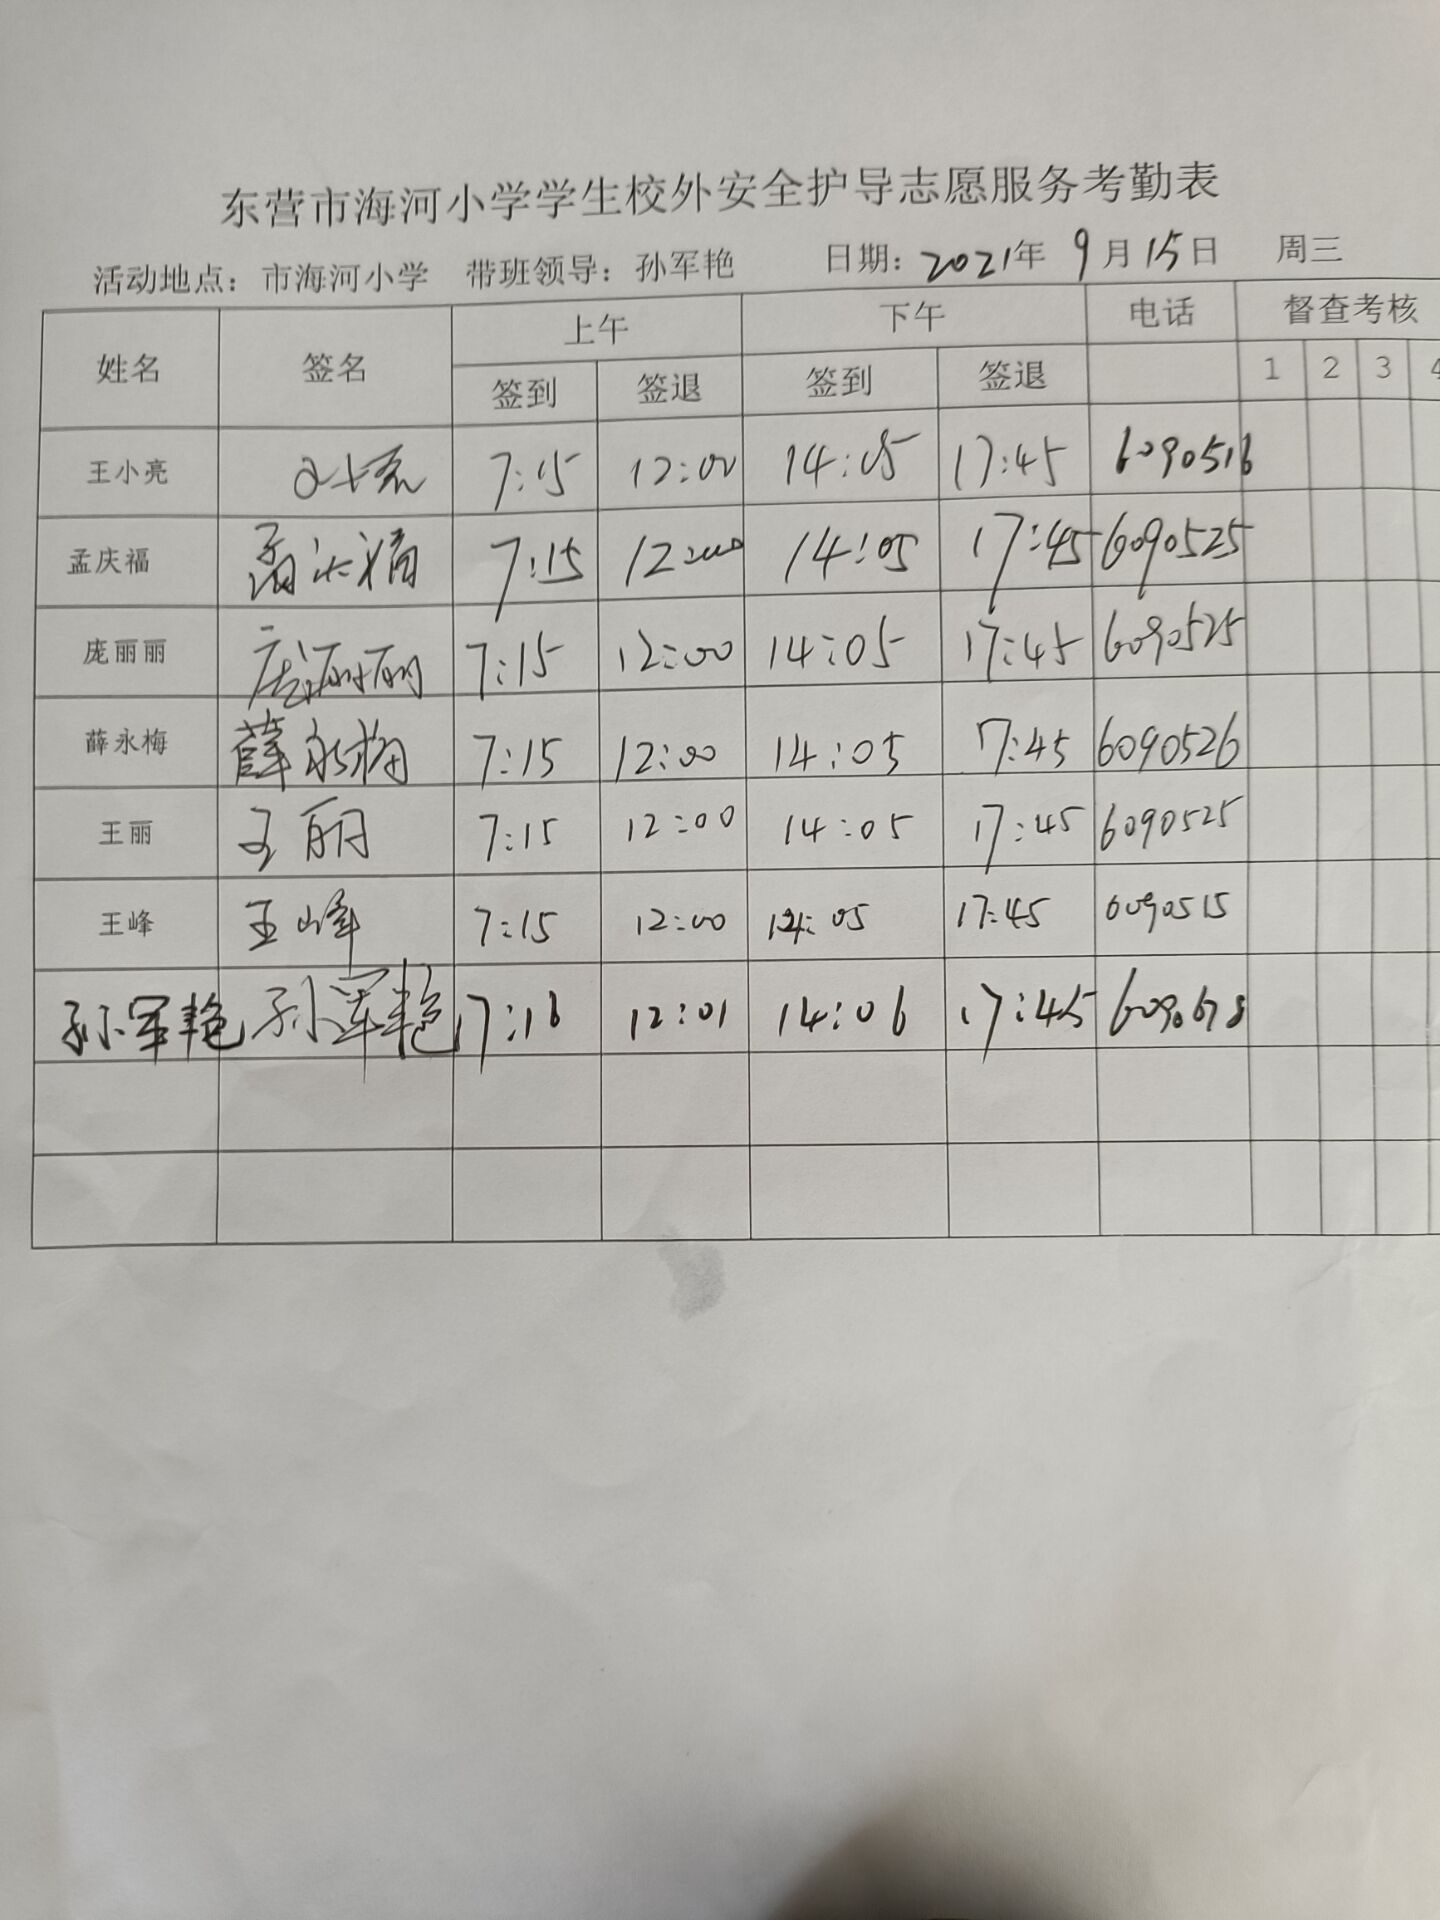 东营市海河小学学生校外安全护导志愿服务考勤表
活动地点：市海河小学 带班领导：孙军艳 日期：2021年 9月 15日 周三
姓名 签名 上午 下午 电话 督查考核
签到 签退 签到 签退 1 2 3 4
王小亮 王小亮 7:15 12:00 14:05 17:45 6090516
孟庆福 孟庆福 7:15 12:00 14:05 17:45 6090525
庞丽丽 庞丽丽 7:15 12:00 14:05 17:45 6090525
薛永梅 薛永梅 7:15 12:00 14:05 17:45 6090526
王丽 王丽 7:15 12:00 14:05 17:45 6090525
王峰 王峰 7:15 12:00 14:05 17:45 6090515
孙军艳 孙军艳 17:16 12:01 14:06 17:45